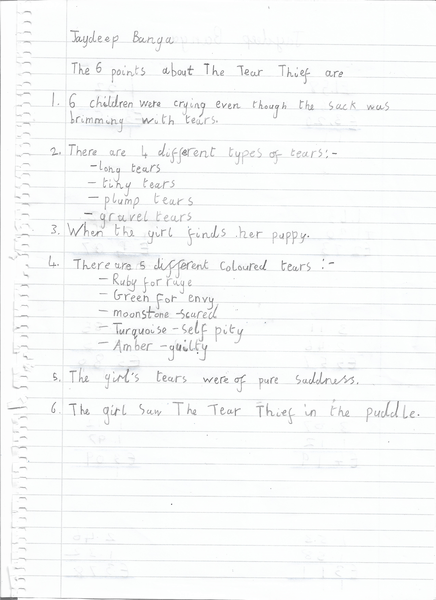 Jaydeep Banga
The 6 points about The Tear Thief are
1. 6 children were crying even though the sack was
brimming with tears.
2. There are 4 different types of tears:-
- long tears
- tiny tears
- plump tears
- gravel tears
3. When the girl finds her puppy.
4. There are 5 different coloured tears :-
- Ruby for rage
- Green for envy
- moonstone - scared
- Turquoise - self pity
- Amber - guilty
5. The girl's tears were of pure saddness.
6. The girl saw The Tear Thief in the puddle.